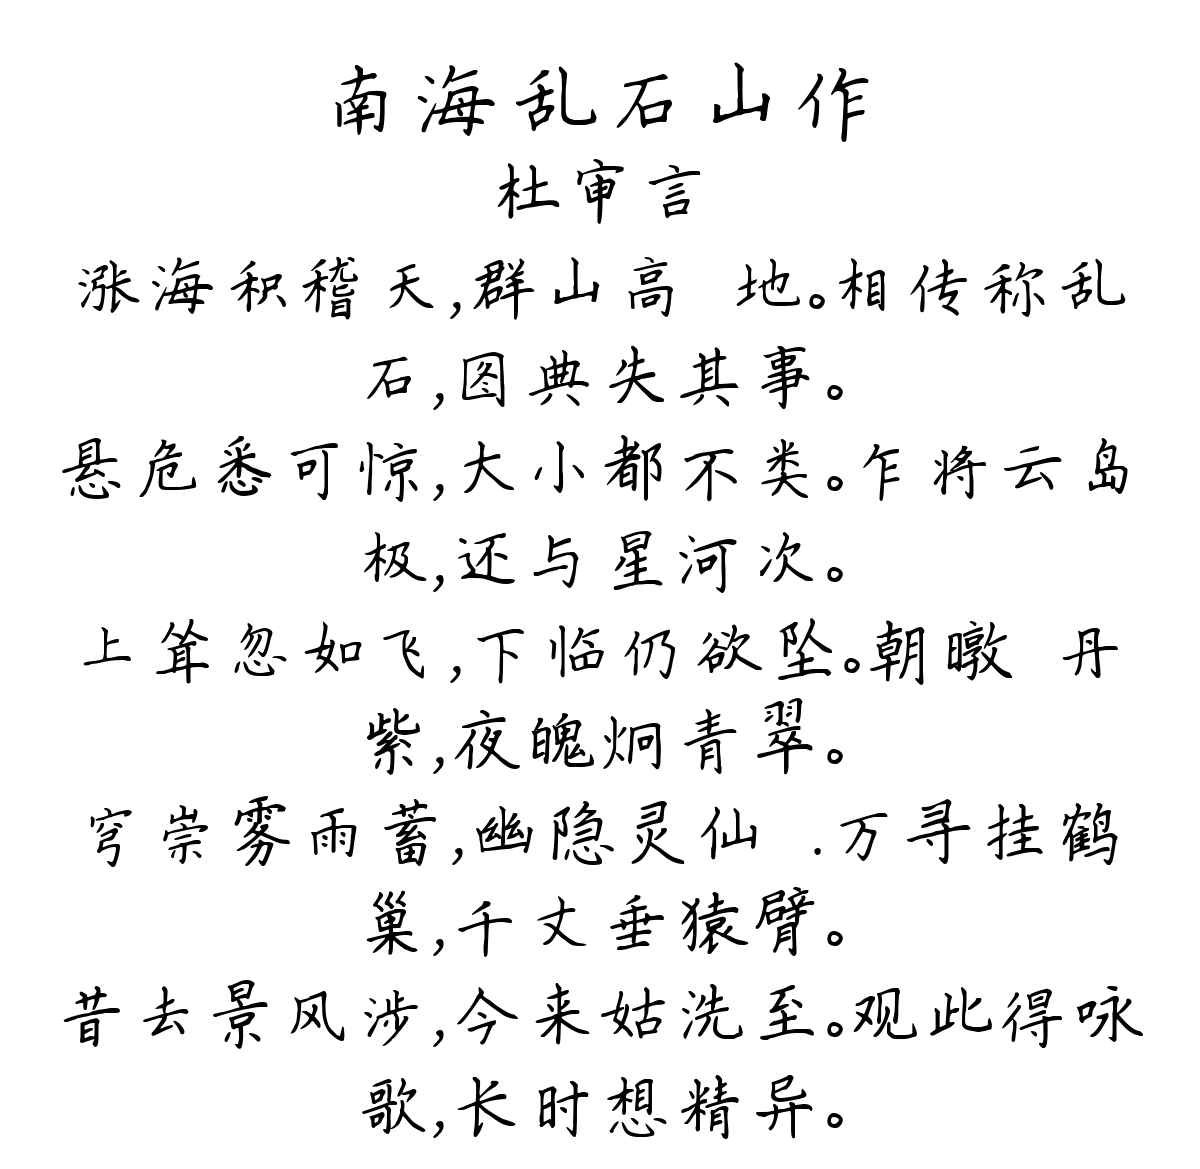 南海乱石山作
杜审言
涨海积稽天,群山高 地。相传称乱
石,图典失其事。
悬危悉可惊,大小都不类。乍将云岛
极,还与星河次。
上耸忽如飞,下临仍欲坠。朝暾 丹
紫,夜魄炯青翠。
穹崇雾雨蓄,幽隐灵仙 .万寻挂鹤
巢,千丈垂猿臂。
昔去景风涉,今来姑洗至。观此得咏
歌,长时想精异。